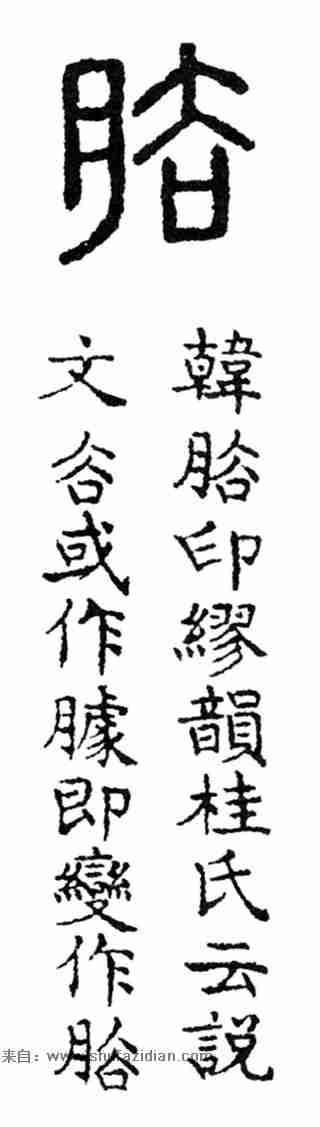 韓印繆韻桂氏云說
文𧮫或作臄即變作
来自：www.shufazidian.com